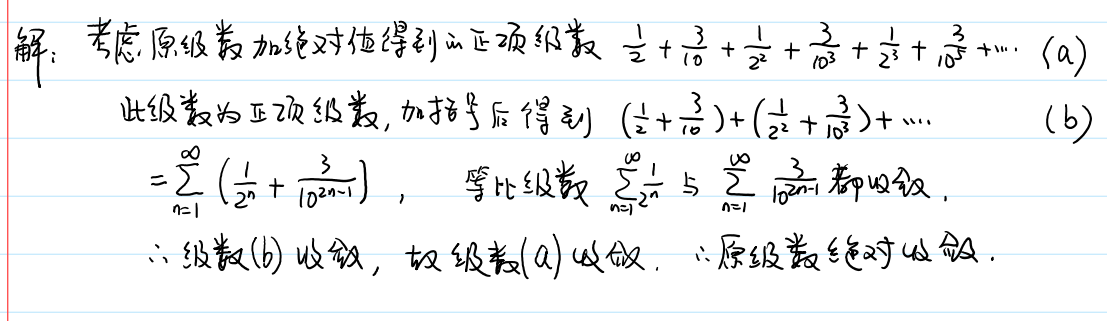 解: 考虑原级数加绝对值得到的正项级数 1/2 + 3/10 + 1/2² + 3/10³ + 1/2³ + 3/10⁵ + ⋯ (a)
此级数为正项级数, 加括号后得到 (1/2 + 3/10) + (1/2² + 3/10³) + ⋯ (b)
= ∑_{n=1}^{∞} (1/2ⁿ + 3/10²ⁿ⁻¹) , 等比级数 ∑_{n=1}^{∞} 1/2ⁿ 与 ∑_{n=1}^{∞} 3/10²ⁿ⁻¹ 都收敛.
∴ 级数(b) 收敛, 故级数(a) 收敛. ∴ 原级数绝对收敛.